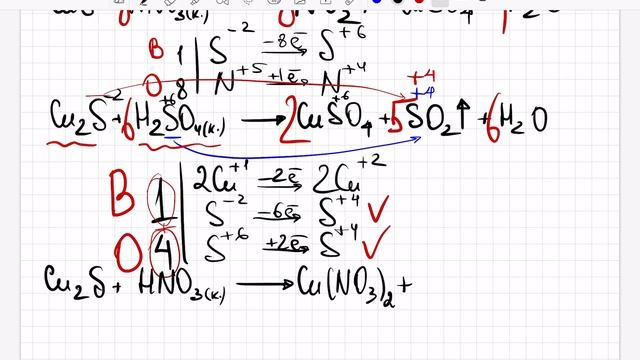 B 1 | S⁻² −8ē→ S⁺⁶
O 8 | N⁺⁵ +1ē→ N⁺⁴
+4
Cu₂S⁻² + 6H₂S⁺⁶O₄(к.) → 2CuS⁺⁶O₄ + 5S⁺⁴O₂↑ + 6H₂O
B 1 | 2Cu⁺¹ −2ē→ 2Cu⁺²
S⁻² −6ē→ S⁺⁴ ✓
O 4 | S⁺⁶ +2ē→ S⁺⁴ ✓
Cu₂S + HNO₃(к.) → Cu(NO₃)₂ +